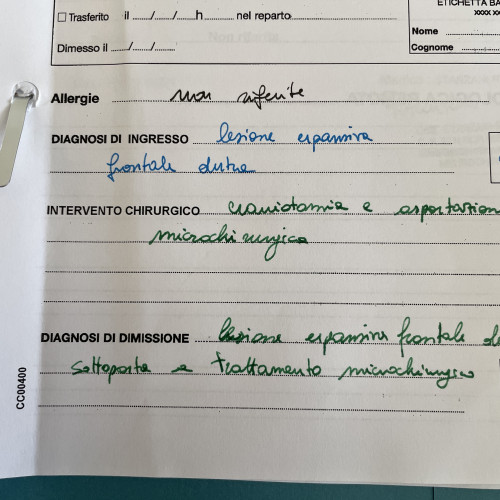 ETICHETTA BA
XXXX XX
☐ Trasferito il ...../...../.....h......... nel reparto
Dimesso il ...../...../.....
Nome
Cognome
Allergie non riferite
DIAGNOSI DI INGRESSO lesione espansiva
frontale destra
INTERVENTO CHIRURGICO craniotomia e asportazion
microchirurgica
DIAGNOSI DI DIMISSIONE lesione espansiva frontale de
Sottoposta a trattamento microchirurgico
CC00400